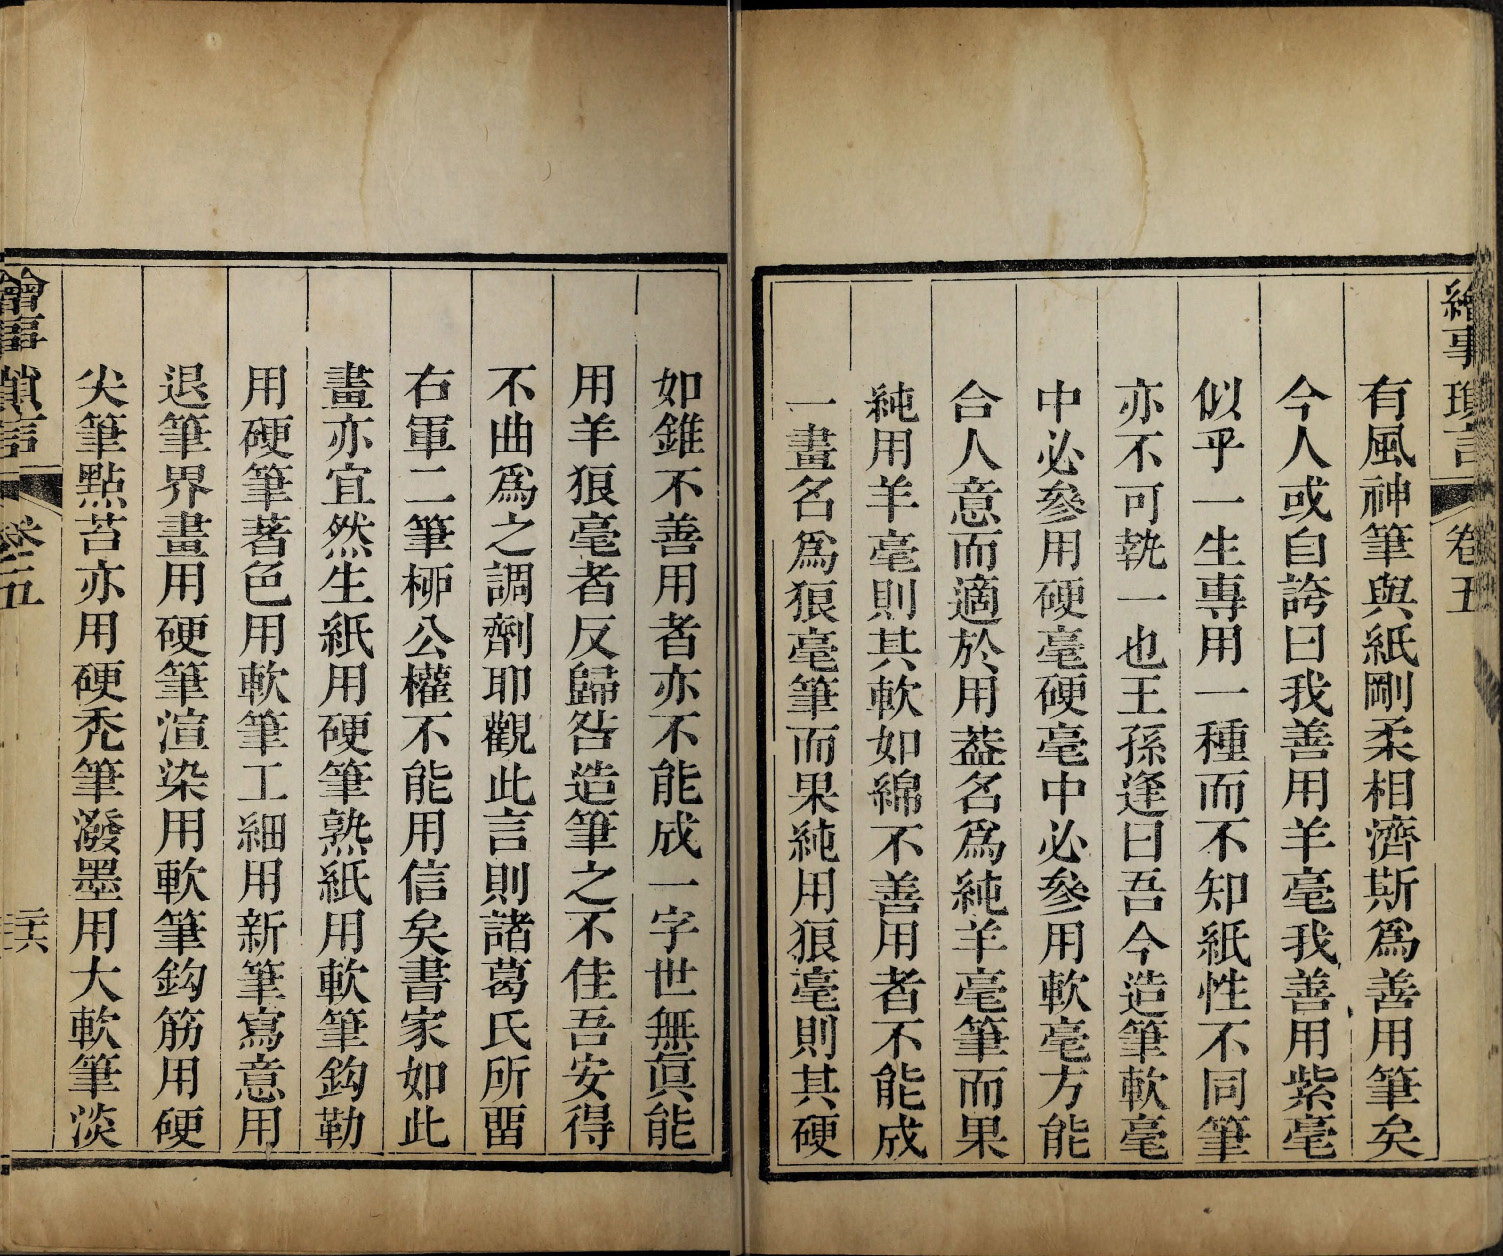 繪事瑣言 卷五
有風神筆與紙剛柔相濟斯爲善用筆矣
今人或自誇曰我善用羊毫我善用紫毫
似乎一生專用一種而不知紙性不同筆
亦不可執一也王孫逢曰吾今造筆軟毫
中必參用硬毫硬毫中必參用軟毫方能
合人意而適於用葢名爲純羊毫筆而果
純用羊毫則其軟如綿不善用者不能成
一畫名爲狼毫筆而果純用狼毫則其硬
如錐不善用者亦不能成一字世無眞能
用羊狼毫者反歸咎造筆之不佳吾安得
不曲爲之調劑耶觀此言則諸葛氏所畱
右軍二筆桺公權不能用信矣書家如此
畫亦宜然生紙用硬筆熟紙用軟筆鈎勒
用硬筆著色用軟筆工細用新筆寫意用
退筆界畫用硬筆渲染用軟筆鈎筋用硬
尖筆點苔亦用硬禿筆潑墨用大軟筆淡
繪事瑣言 卷五 二十六